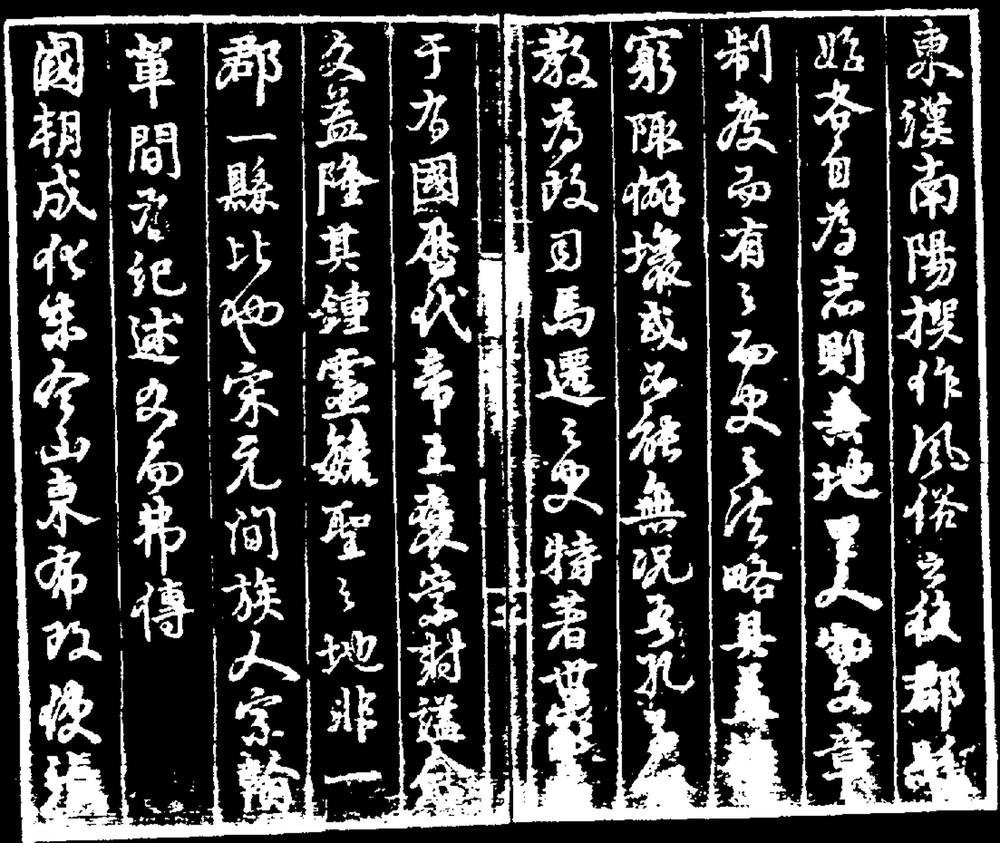 東漢南陽撰作風俗之後郡縣
始各自為志則無地里人物文章
制度而有之而史之法略具
窮陬僻壤或不能無况吾孔
教為政司馬遷之史特著世家
于有國歷代帝王褒崇封謚
文益隆其鍾靈毓聖之地非一
郡一縣比也宋元間族人宗翰
輩間存記述久而弗傳
國朝成化朱令山東布政使張